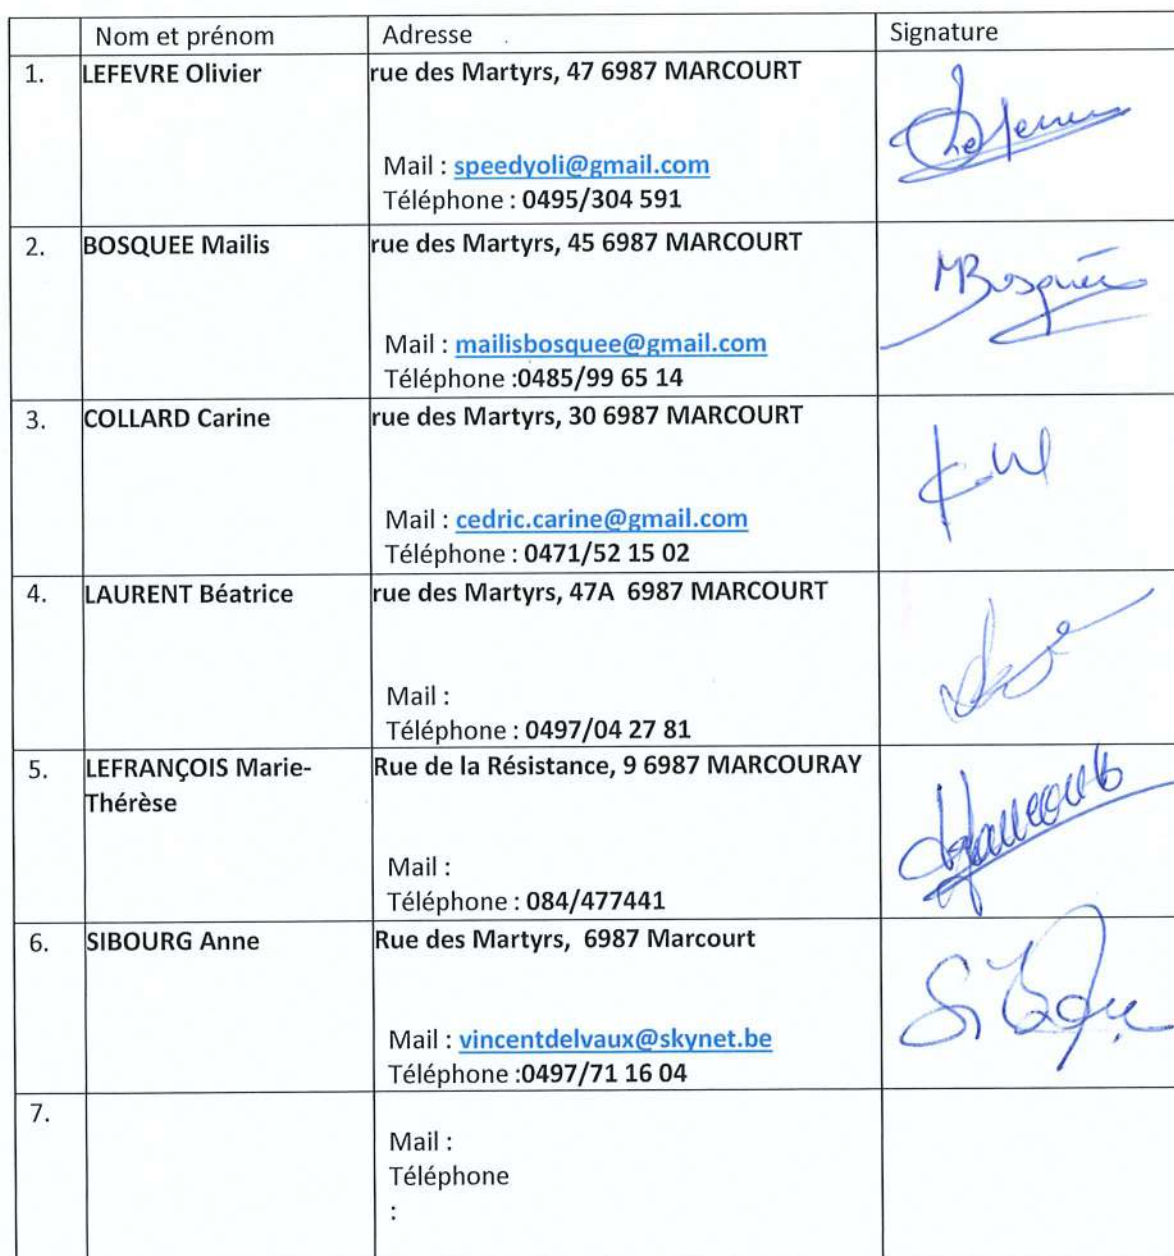 Nom et prénom Adresse Signature
1. LEFEVRE Olivier rue des Martyrs, 47 6987 MARCOURT
Mail : speedyoli@gmail.com
Téléphone : 0495/304 591
2. BOSQUEE Mailis rue des Martyrs, 45 6987 MARCOURT
MBosquée
Mail : mailisbosquee@gmail.com
Téléphone :0485/99 65 14
3. COLLARD Carine rue des Martyrs, 30 6987 MARCOURT
Mail : cedric.carine@gmail.com
Téléphone : 0471/52 15 02
4. LAURENT Béatrice rue des Martyrs, 47A 6987 MARCOURT
Mail :
Téléphone : 0497/04 27 81
5. LEFRANÇOIS Marie- Rue de la Résistance, 9 6987 MARCOURAY
Thérèse
Mail :
Téléphone : 084/477441
6. SIBOURG Anne Rue des Martyrs, 6987 Marcourt
Mail : vincentdelvaux@skynet.be
Téléphone :0497/71 16 04
7.
Mail :
Téléphone
: